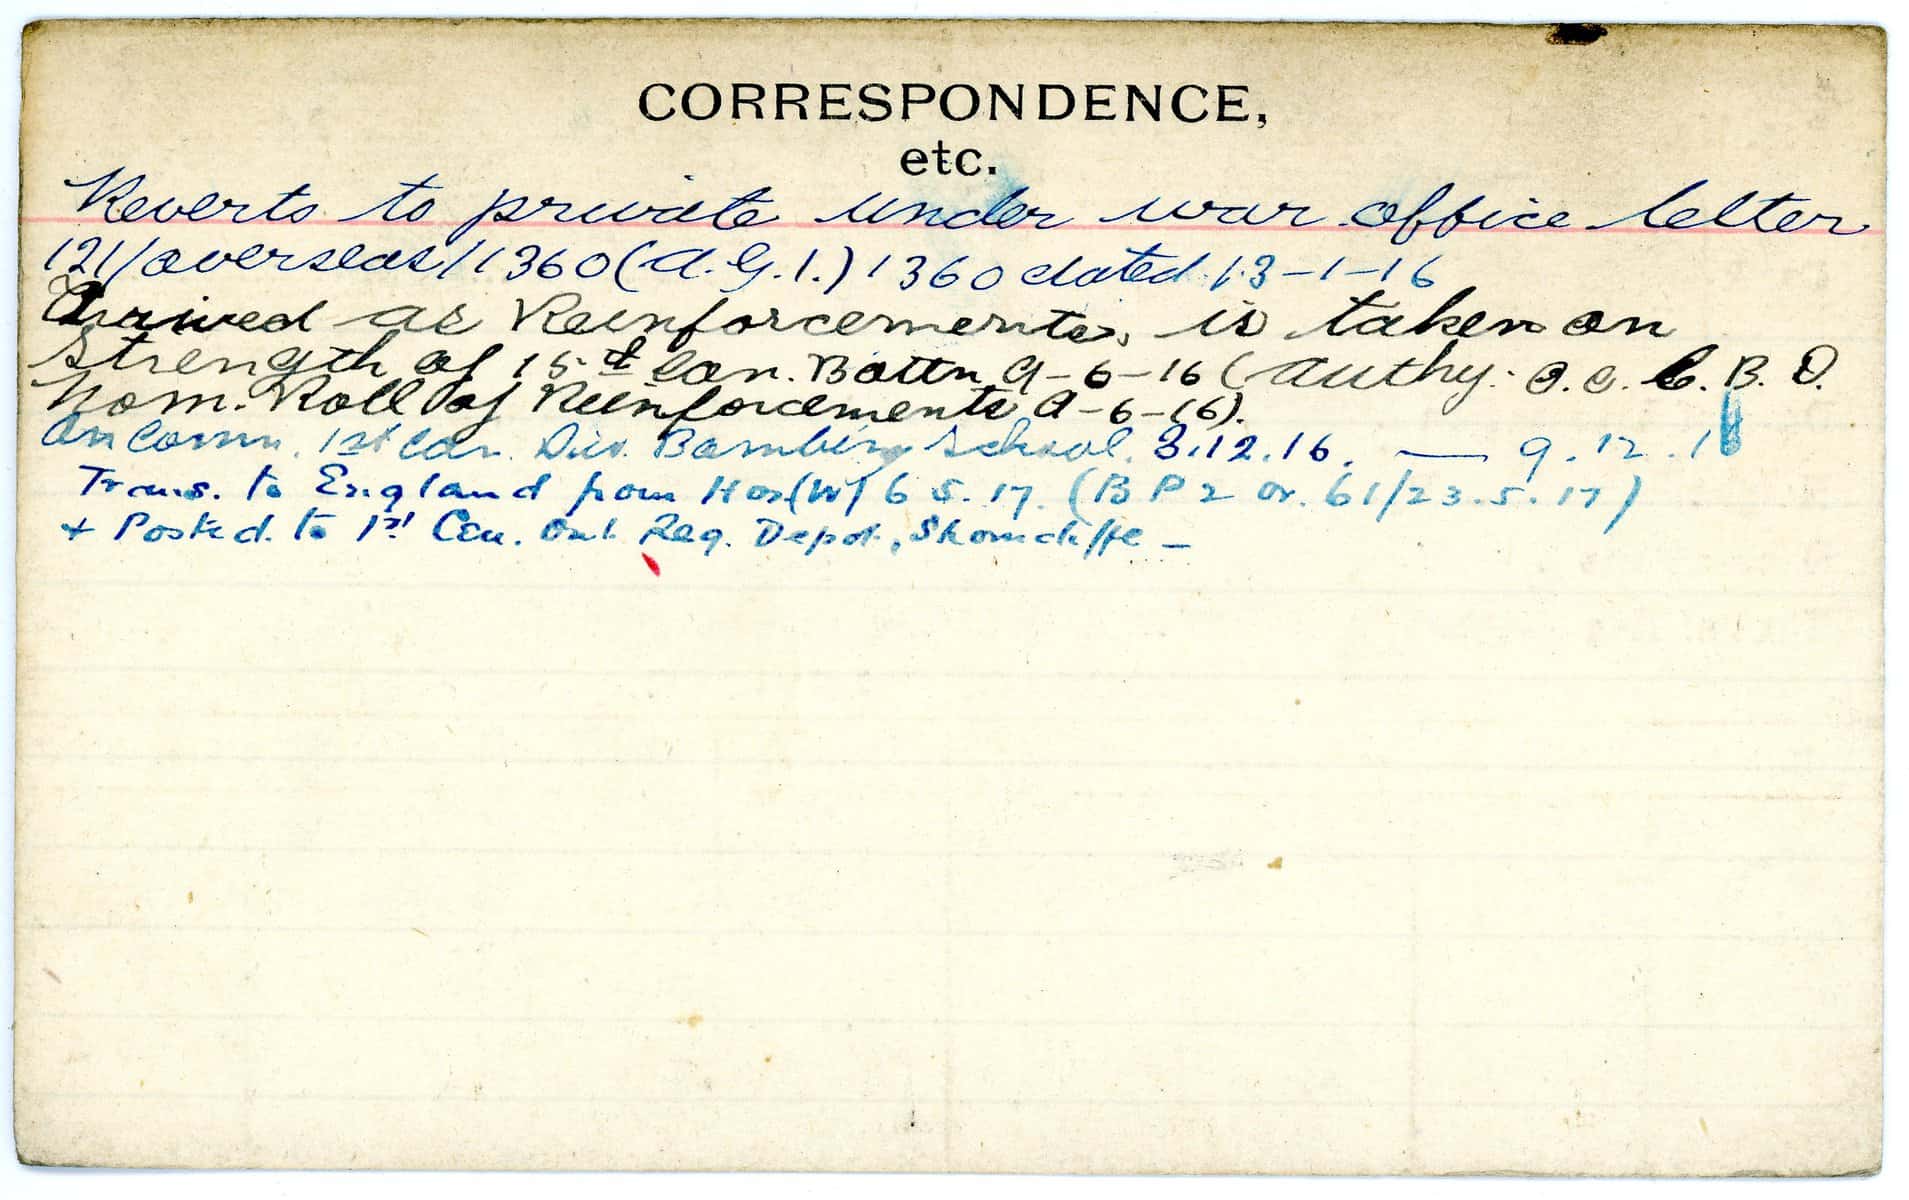 CORRESPONDENCE,
etc.
Reverts to private under war office letter
121/overseas/1360 (A.G.1.) 1360 dated 13-1-16
Arrived as Reinforcements, is taken on
Strength of 15th Can. Battn 9-6-16 (Authy. O.C. C.B.D.
Nom. Roll of Reinforcements 9-6-16).
On Comm. 1st Can. Div. Bombing School. 3.12.16. — 9.12.16
Trans. to England from Hos (W) 6 5.17. (B P 2 Or. 61/23.5.17)
+ Posted to 1st Cen. Ont. Reg. Depot, Shorncliffe —